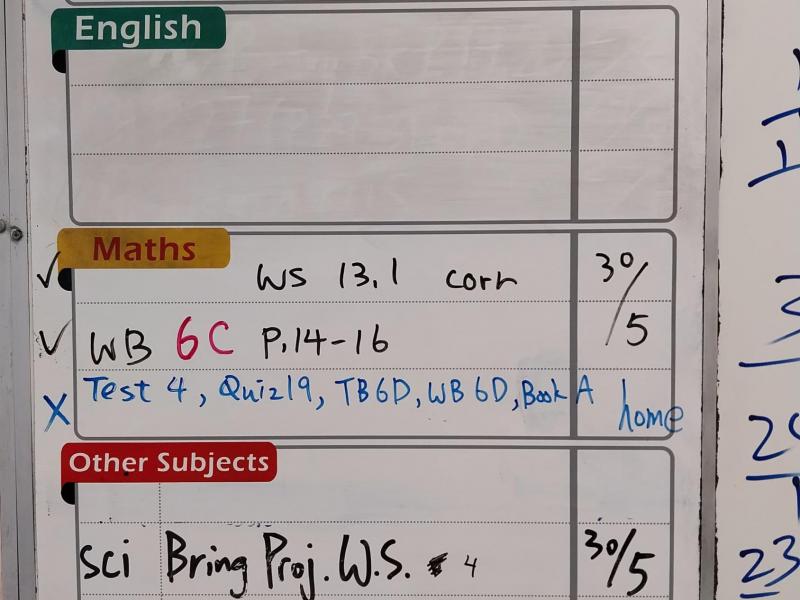 English
Maths
✓ WS 13.1 corr 30/5
✓ WB 6C P.14-16
X Test 4, Quiz19, TB6D, WB 6D, Book A home
Other Subjects
sci Bring Proj. W.S. 4 30/5
23